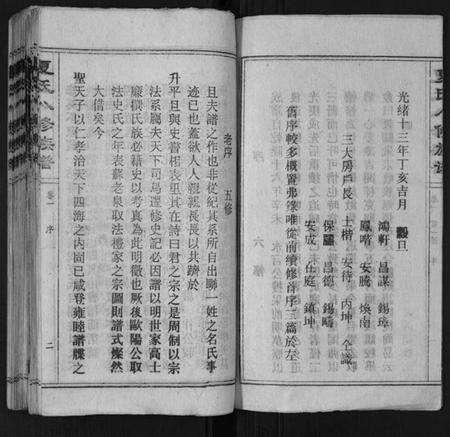 夏氏八修族譜
光緒十三年丁亥吉月 穀旦
鴻軒 昌謀 錫璋
鳳喈 安騰 煥南
三大房戶長 士楷 安待 丙坤 仝識
保 昌德 錫疇
安成 任庭 鎮坤
舊序較多概習弗錄唯從前續修首序三篇於左
老序 五修
且夫譜之作也非從紀其系所自出聯一姓之名氏事
迹已也蓋欲人人親親長長以共躋於
升平且與史書相表裏其在詩曰君之宗之是周制以宗
法系屬夫天下司馬遷修史記必因譜以明世家高士
廉撰氏族必稽史以考真為此明徵也厥後歐陽公取
法史氏之年表蘇老泉取法禮家之宗圖則譜式燦然
大備矣今
聖天子以仁孝治天下四海之內固已咸登雍睦譜牒之
夏氏八修族譜
卷一 序
二